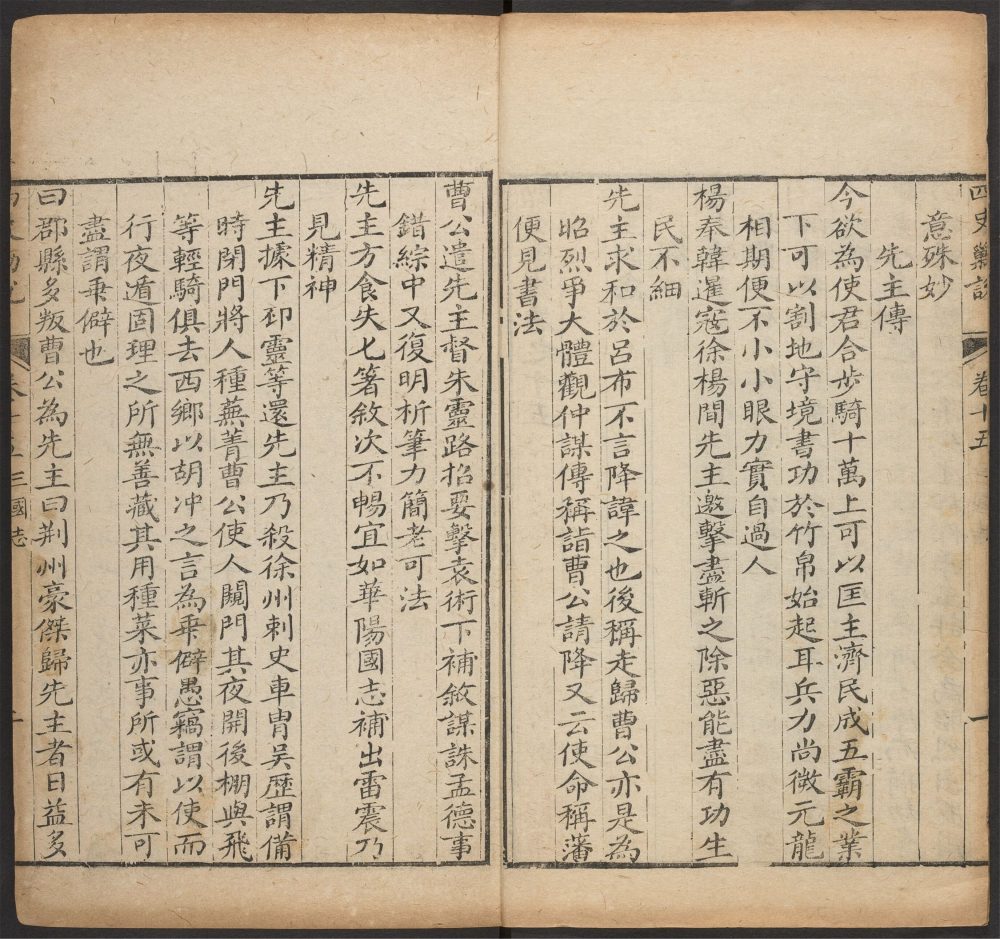 四史勦說 卷十五 一
意殊妙
先主傳
今欲為使君合步騎十萬上可以匡主濟民成五霸之業
下可以割地守境書功於竹帛始起耳兵力尚微元龍
相期便不小小眼力實自過人
楊奉韓暹寇徐楊間先主邀擊盡斬之除惡能盡有功生
民不細
先主求和於呂布不言降諱之也後稱走歸曹公亦是為
昭烈爭大體觀仲謀傳稱詣曹公請降又云使命稱藩
便見書法
曹公遣先主督朱靈路招要擊袁術下補敘謀誅孟德事
錯綜中又復明析筆力簡老可法
先主方食失匕箸敘次不暢宜如華陽國志補出雷震乃
見精神
先主據下邳靈等還先主乃殺徐州刺史車胄吳歷謂備
時閉門將人種蕪菁曹公使人闚門其夜開後棚與飛
等輕騎俱去西鄉以胡沖之言為乖僻愚竊謂以使而
行夜遁固理之所無善藏其用種菜亦事所或有未可
盡謂乖僻也
曰郡縣多叛曹公為先主曰荆州豪傑歸先主者日益多
三國志